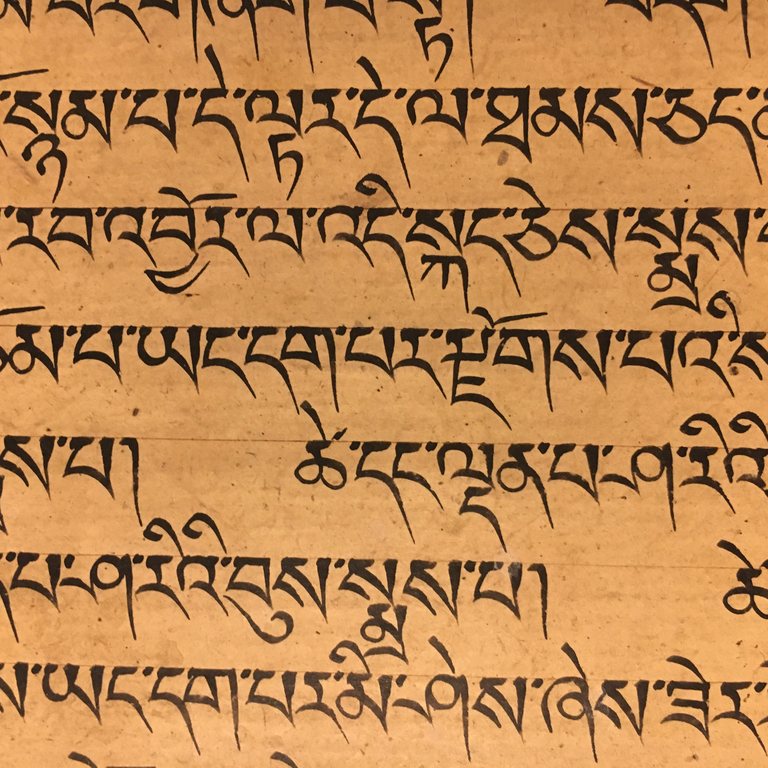 སྙམ་པ་དེ་ལྟར་དེ་ལ་ཐམས་ཅད་
་རབ་འབྱོར་ལ་འདི་སྐད་ཅེས་སྨྲས་
པ་ཡང་དག་པར་རྫོགས་པའི་ས
ས་པ། ཚེ་དང་ལྡན་པ་ཤ་རིའི་
་པ་ཤ་རིའི་བུས་སྨྲས་པ། ཚེ
ས་ཡང་དག་པར་མི་ཤེས་ཞེས་ཟེར་